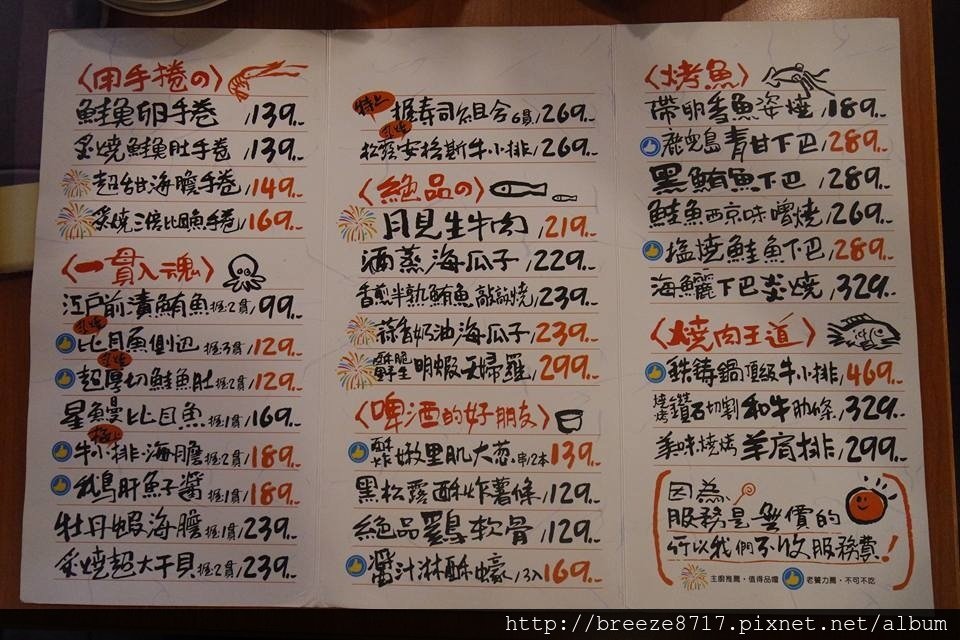 〈用手捲の〉
鮭魚卵手巻 /139..
炙燒鮭魚肚手卷 /139..
超甜海膽手卷 /149..
炙燒三倍比目魚手卷 /169..
〈一貫入魂〉
江戶前漬鮪魚 握2貫/99..
炙燒
比目魚側邊 握3貫/129..
炙燒
超厚切鮭魚肚 握2貫/129..
星鰻比目魚 握1貫/169..
極上
牛小排海膽 握2貫/189..
鵝肝魚子醬 握1貫/189..
牡丹蝦海膽 握1貫/239..
炙燒超大干貝 握2貫/239..
特上
握寿司組合 6貫/269..
炙燒
松露安格斯牛小排/269..
〈絕品の〉
月見生牛肉 /219..
酒蒸海瓜子 /229..
香煎半熟鮪魚敲敲燒/239..
蒜香奶油海瓜子 /239..
酥脆鮮生明蝦天婦羅 /299..
〈啤酒的好朋友〉
酥炸嫩里肌大葱 串/2本 139..
黑松露酥炸薯條 /129..
絕品雞軟骨 /129..
醬汁淋酥蠔 /3入 169..
〈烤魚〉
帶卵香魚姿燒 /189..
鹿兒島青甘下巴 /289..
黑鮪魚下巴 /289..
鮭魚西京味噌燒/269..
塩燒鮭魚下巴 /289..
海鱺下巴炙燒 /329..
〈燒肉王道〉
鉄鑄鍋頂級牛小排/469..
燒烤鑽石切割和牛肋條/329..
美味燒烤羊肩排/299..
因為
服務是無價的
所以我們不收服務費!
主廚推薦,值得品嚐
老饕力薦,不可不吃
http://breeze8717.pixnet.net/album